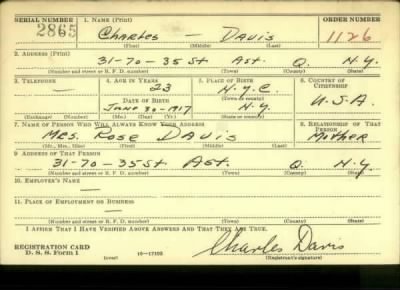 SERIAL NUMBER 1. NAME (Print) ORDER NUMBER
2865 CHARLES — DAVIS 1126
(First) (Middle) (Last)
2. ADDRESS (Print)
31-70-35 St Ast. Q. N.Y.
(Number and street or R. F. D. number) (Town) (County) (State)
3. TELEPHONE 4. AGE IN YEARS 5. PLACE OF BIRTH 6. COUNTRY OF CITIZENSHIP
— 23 N.Y.C.
DATE OF BIRTH (Town or county)
June 30-1917 N.Y. U.S.A.
(Exchange) (Number) (Mo.) (Day) (Yr.) (State or country)
7. NAME OF PERSON WHO WILL ALWAYS KNOW YOUR ADDRESS 8. RELATIONSHIP OF THAT PERSON
MRS. ROSE DAVIS MOTHER
(Mr., Mrs., Miss) (First) (Middle) (Last)
9. ADDRESS OF THAT PERSON
31-70-35 St. Ast. Q. N.Y.
(Number and street or R. F. D. number) (Town) (County) (State)
10. EMPLOYER'S NAME
—
11. PLACE OF EMPLOYMENT OR BUSINESS
—
(Number and street or R. F. D. number) (Town) (County) (State)
I AFFIRM THAT I HAVE VERIFIED ABOVE ANSWERS AND THAT THEY ARE TRUE.
REGISTRATION CARD Charles Davis
D. S. S. Form 1 (over) (Registrant's signature)